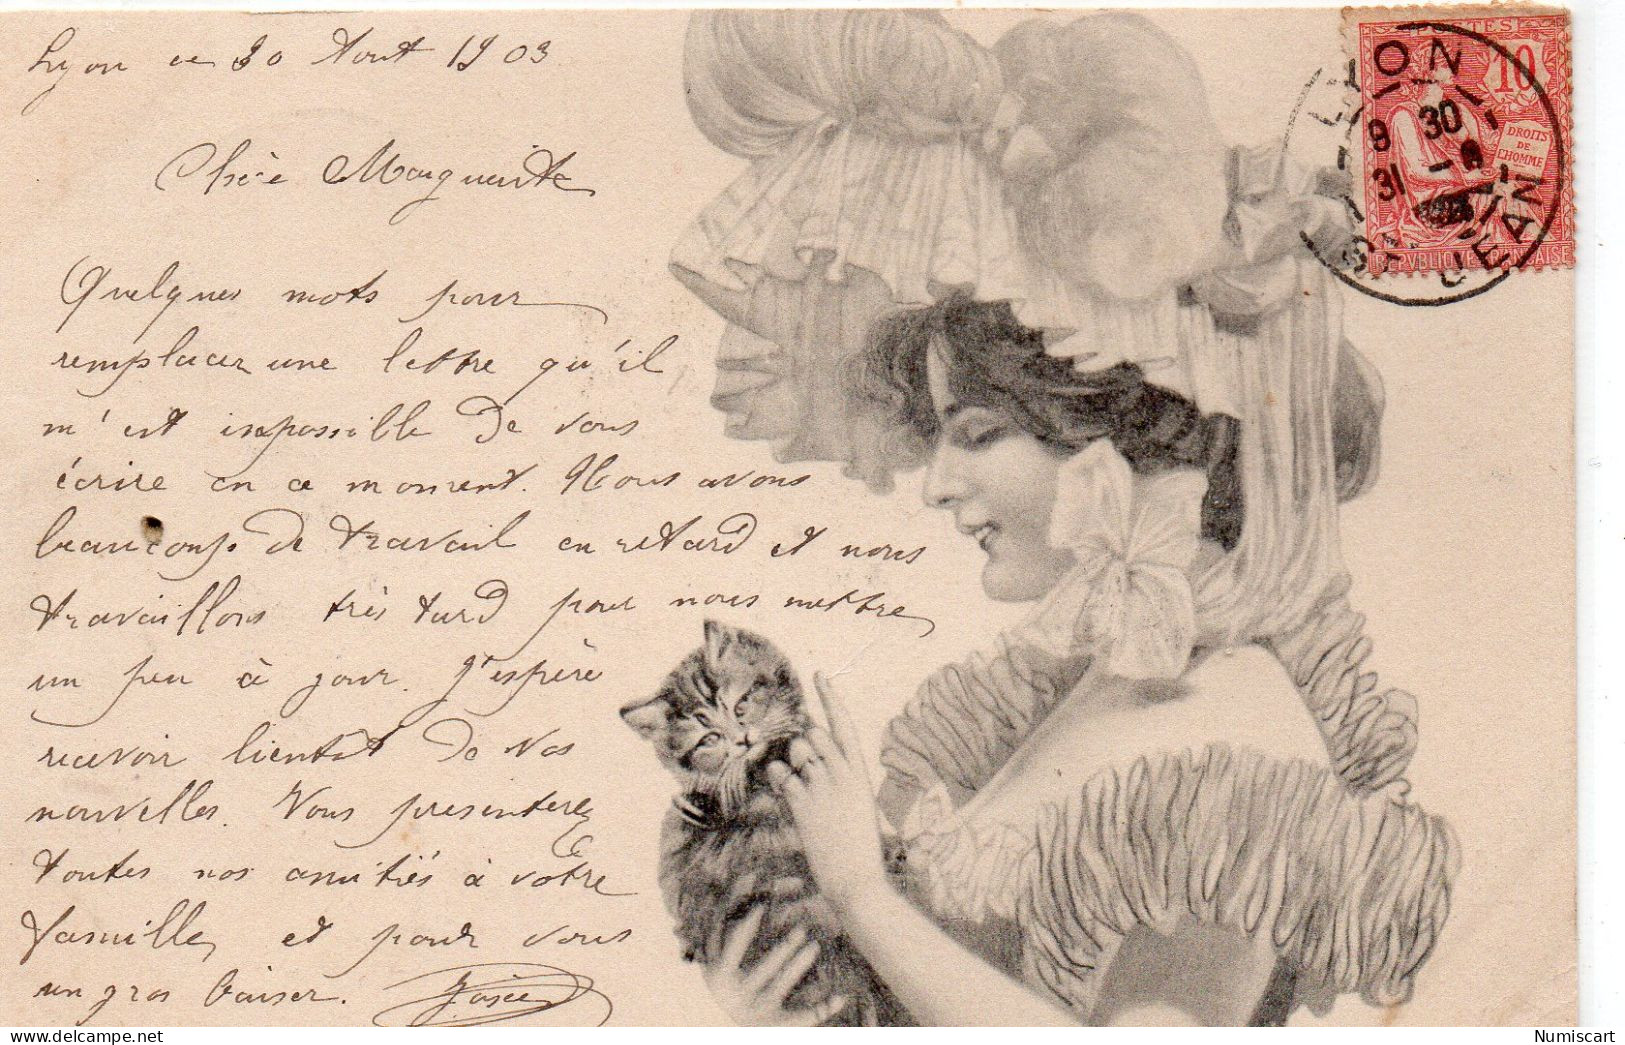 Lyon ce 30 Aout 1903
Chère Marguerite
Quelques mots pour
remplacer une lettre qu'il
m'est impossible de vous
écrire en ce moment. Nous avons
beaucoup de travail en retard et nous
travaillons très tard pour nous mettre
un peu à jour. J'espère
recevoir bientôt de vos
nouvelles. Vous presenterez
toutes nos amitiés à votre
famille, et pour vous
un gros baiser.
POSTES
10
DROITS
DE
L'HOMME
REPUBLIQUE FRANÇAISE
LYON
9 30
31 - 8
ST JEAN
Numiscart